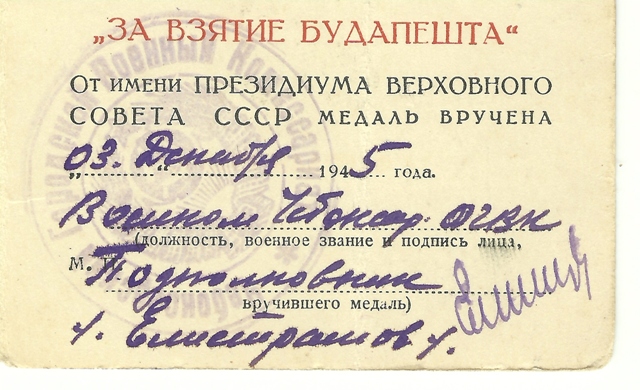 „ЗА ВЗЯТИЕ БУДАПЕШТА“
ОТ ИМЕНИ ПРЕЗИДИУМА ВЕРХОВНОГО
СОВЕТА СССР МЕДАЛЬ ВРУЧЕНА
„03“ Декабря 1945 года.
Военком
(должность, военное звание и подпись лица,
М. П. Подполковник
вручившего медаль)
/. Елистратов /.